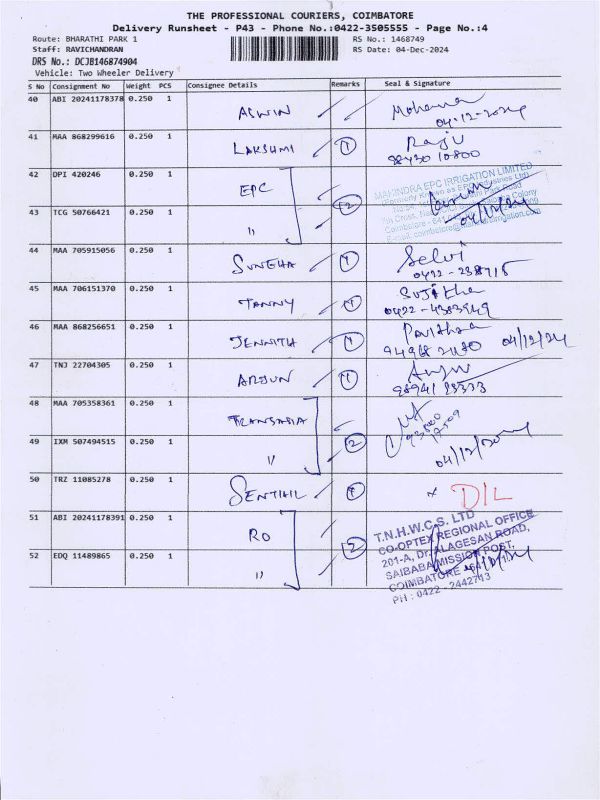 THE PROFESSIONAL COURIERS, COIMBATORE
Delivery Runsheet - P43 - Phone No.:0422-3505555 - Page No.:4
Route: BHARATHI PARK 1 RS No.: 1468749
Staff: RAVICHANDRAN RS Date: 04-Dec-2024
DRS No.: DCJB146874904
Vehicle: Two Wheeler Delivery
S No Consignment No Weight PCS Consignee Details Remarks Seal & Signature
40 ABI 20241178378 0.250 1 ASWIN Mohana
04-12-2024
41 MAA 868299616 0.250 1 LAKSHMI 1 Raju
98430 10800
42 DPI 420246 0.250 1 EPC 2 MAHINDRA EPC IRRIGATION LIMITED
43 TCG 50766421 0.250 1 "
44 MAA 705915056 0.250 1 SUNEHA 1 Selvi
45 MAA 706151370 0.250 1 TANNY 1 Sujitha
46 MAA 868256651 0.250 1 JENNITH 1 Pavithra
04/12/24
47 TNJ 22704305 0.250 1 ARJUN 1 Anju
48 MAA 705358361 0.250 1
49 IXM 507494515 0.250 1 " 2
50 TRZ 11085278 0.250 1 SENTHIL 1 DIL
51 ABI 20241178391 0.250 1 RO 2
52 EDQ 11489865 0.250 1 "
T.N.H.W.C.S. LTD
CO-OPTEX REGIONAL OFFICE
201-A, Dr. ALAGESAN ROAD,
SAIBABA MISSION POST,
COIMBATORE
PH : 0422 - 2442713